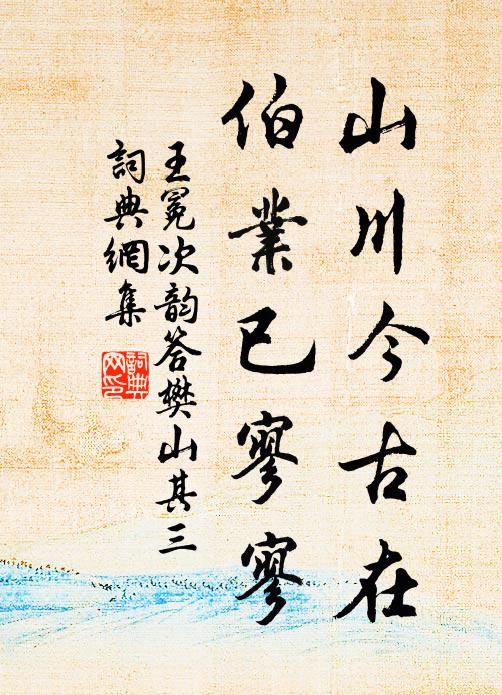 山川今古在
伯業已寥寥
王冕次韵答樊山其三
詞典網集
詞典网印